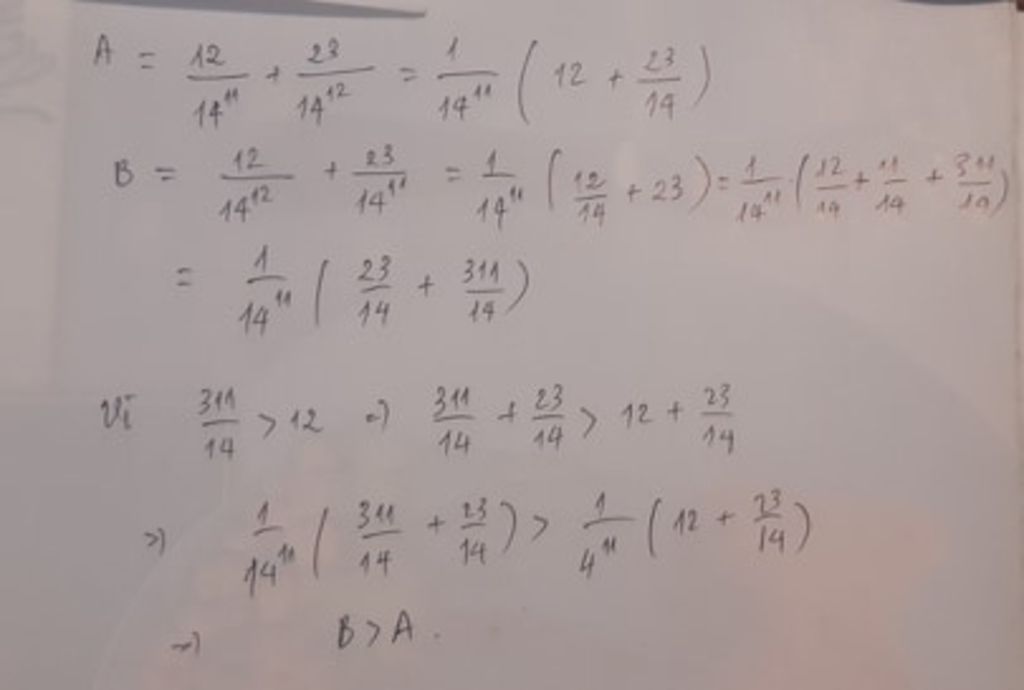 A = 12/14^11 + 23/14^12 = 1/14^11 ( 12 + 23/14 )
B = 12/14^12 + 23/14^11 = 1/14^11 ( 12/14 + 23 ) = 1/14^11 . ( 12/14 + 11/14 + 311/14 )
= 1/14^11 ( 23/14 + 311/14 )
Vì 311/14 > 12 => 311/14 + 23/14 > 12 + 23/14
=> 1/14^11 ( 311/14 + 23/14 ) > 1/4^11 ( 12 + 23/14 )
=> B > A .